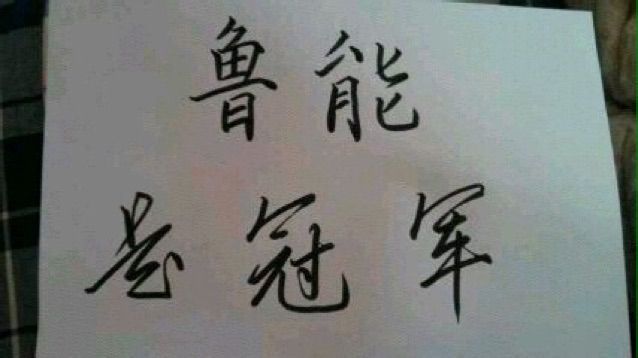 鲁能
是冠军